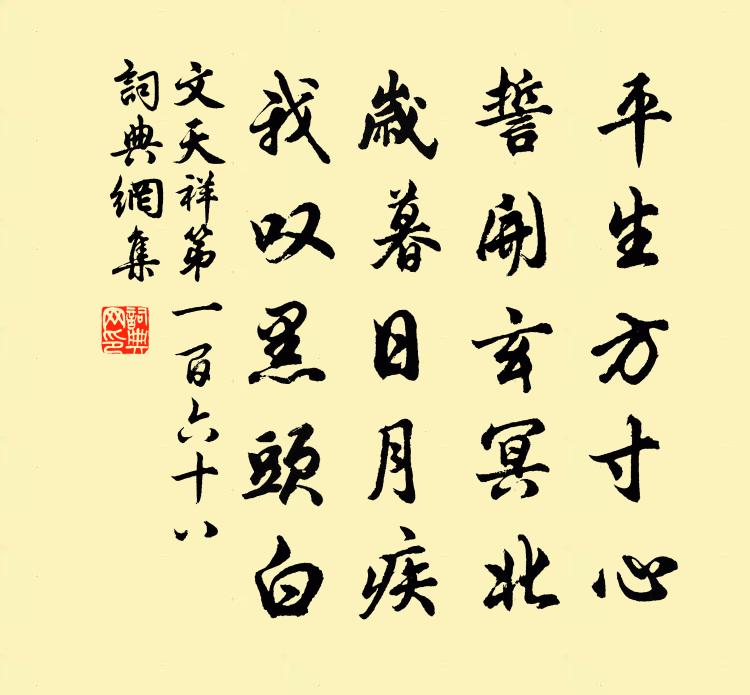 平生方寸心
誓開玄冥北
歲暮日月疾
我叹黑頭白
文天祥第一百六十八
詞典網集
詞典網印